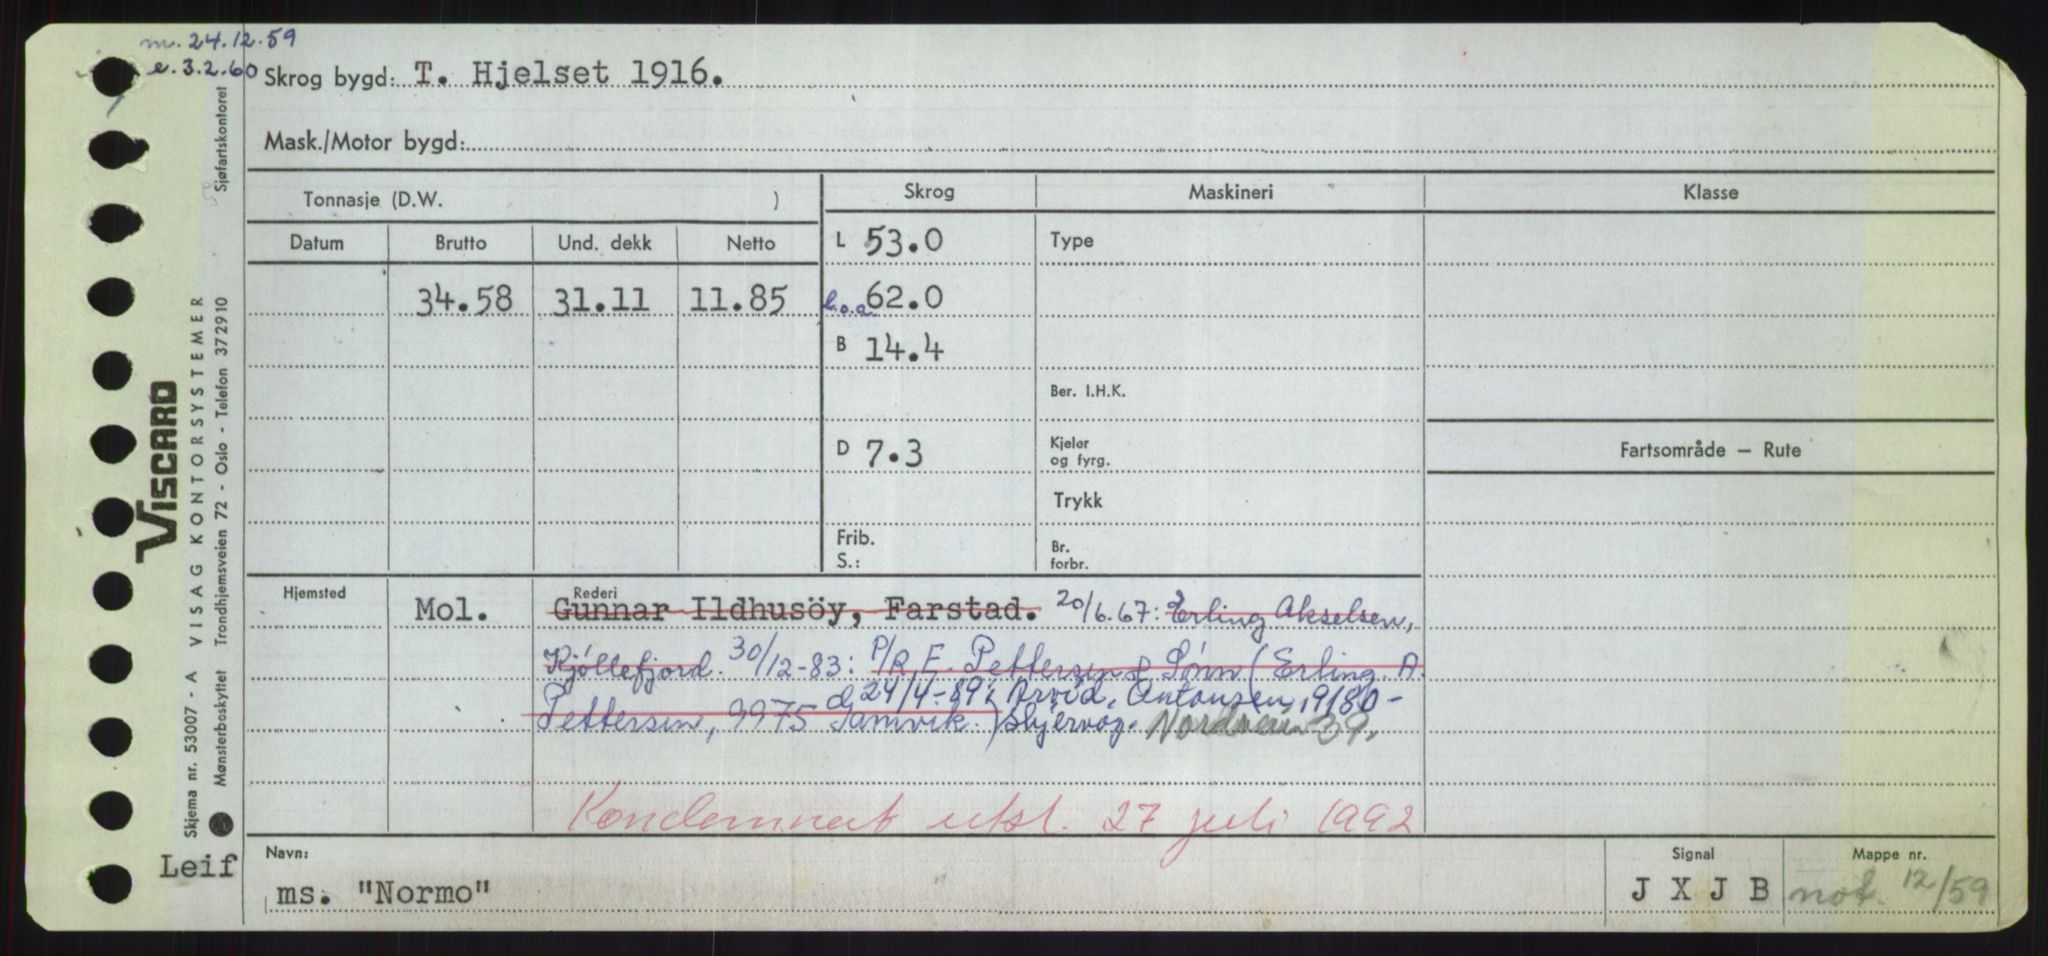 m. 24.12.59
e. 3.2.60
Skrog bygd: T. Hjelset 1916.
Mask./Motor bygd:
Tonnasje (D.W. )
Skrog
Maskineri
Klasse
Datum
Brutto
Und. dekk
Netto
L 53.0
Type
34.58
31.11
11.85
L.o.a. 62.0
B 14.4
Ber. I.H.K.
D 7.3
Kjeler
og fyrg.
Fartsområde — Rute
Trykk
Frib.
S.:
Br.
forbr.
Hjemsted
Mol.
Rederi
Gunnar Ildhusöy, Farstad. 20/6.67: Erling Akselsen,
Kjöllefjord. 30/12-83: P/R E. Pettersen & Sønn (Erling A.
Pettersen, 9975 Lamvik.)
24/4-89: Arvid Antonsen, 9180-
Skjervøy. Nordveien 39.
Kondemnert utsl. 27 juli 1992
Leif
Navn:
ms. "Normo"
Signal
J X J B
Mappe nr.
not. 12/59
VISCARD
VISAG KONTORSYSTEMER
Skjema nr. 53007 - A
Mønsterbeskyttet
Trondhjemsveien 72 - Oslo - Telefon 372910
Sjøfartskontoret